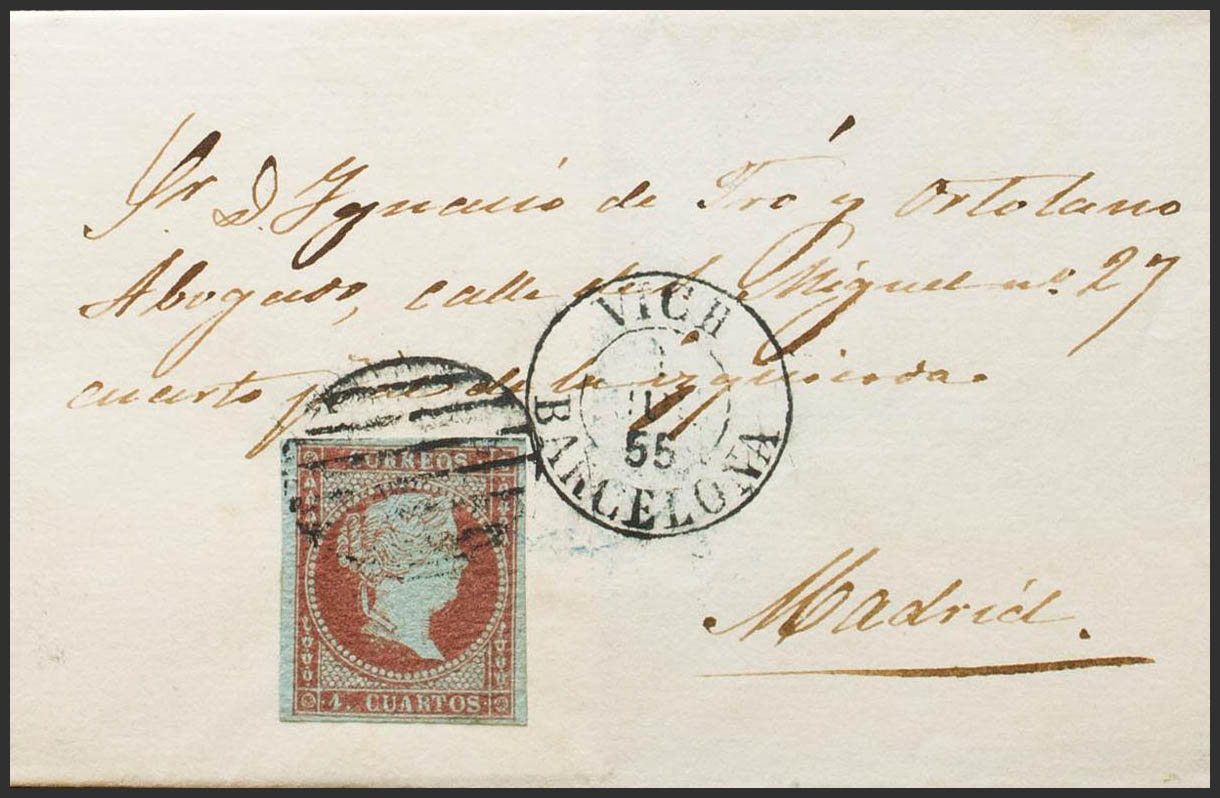 Sr. D. Ygnacio de Tró y Ortolano
Abogado, calle de S. Miguel nº 27
cuarto de la izquierda.
VICH
55
BARCELONA
CORREOS
4. CUARTOS
Madrid.